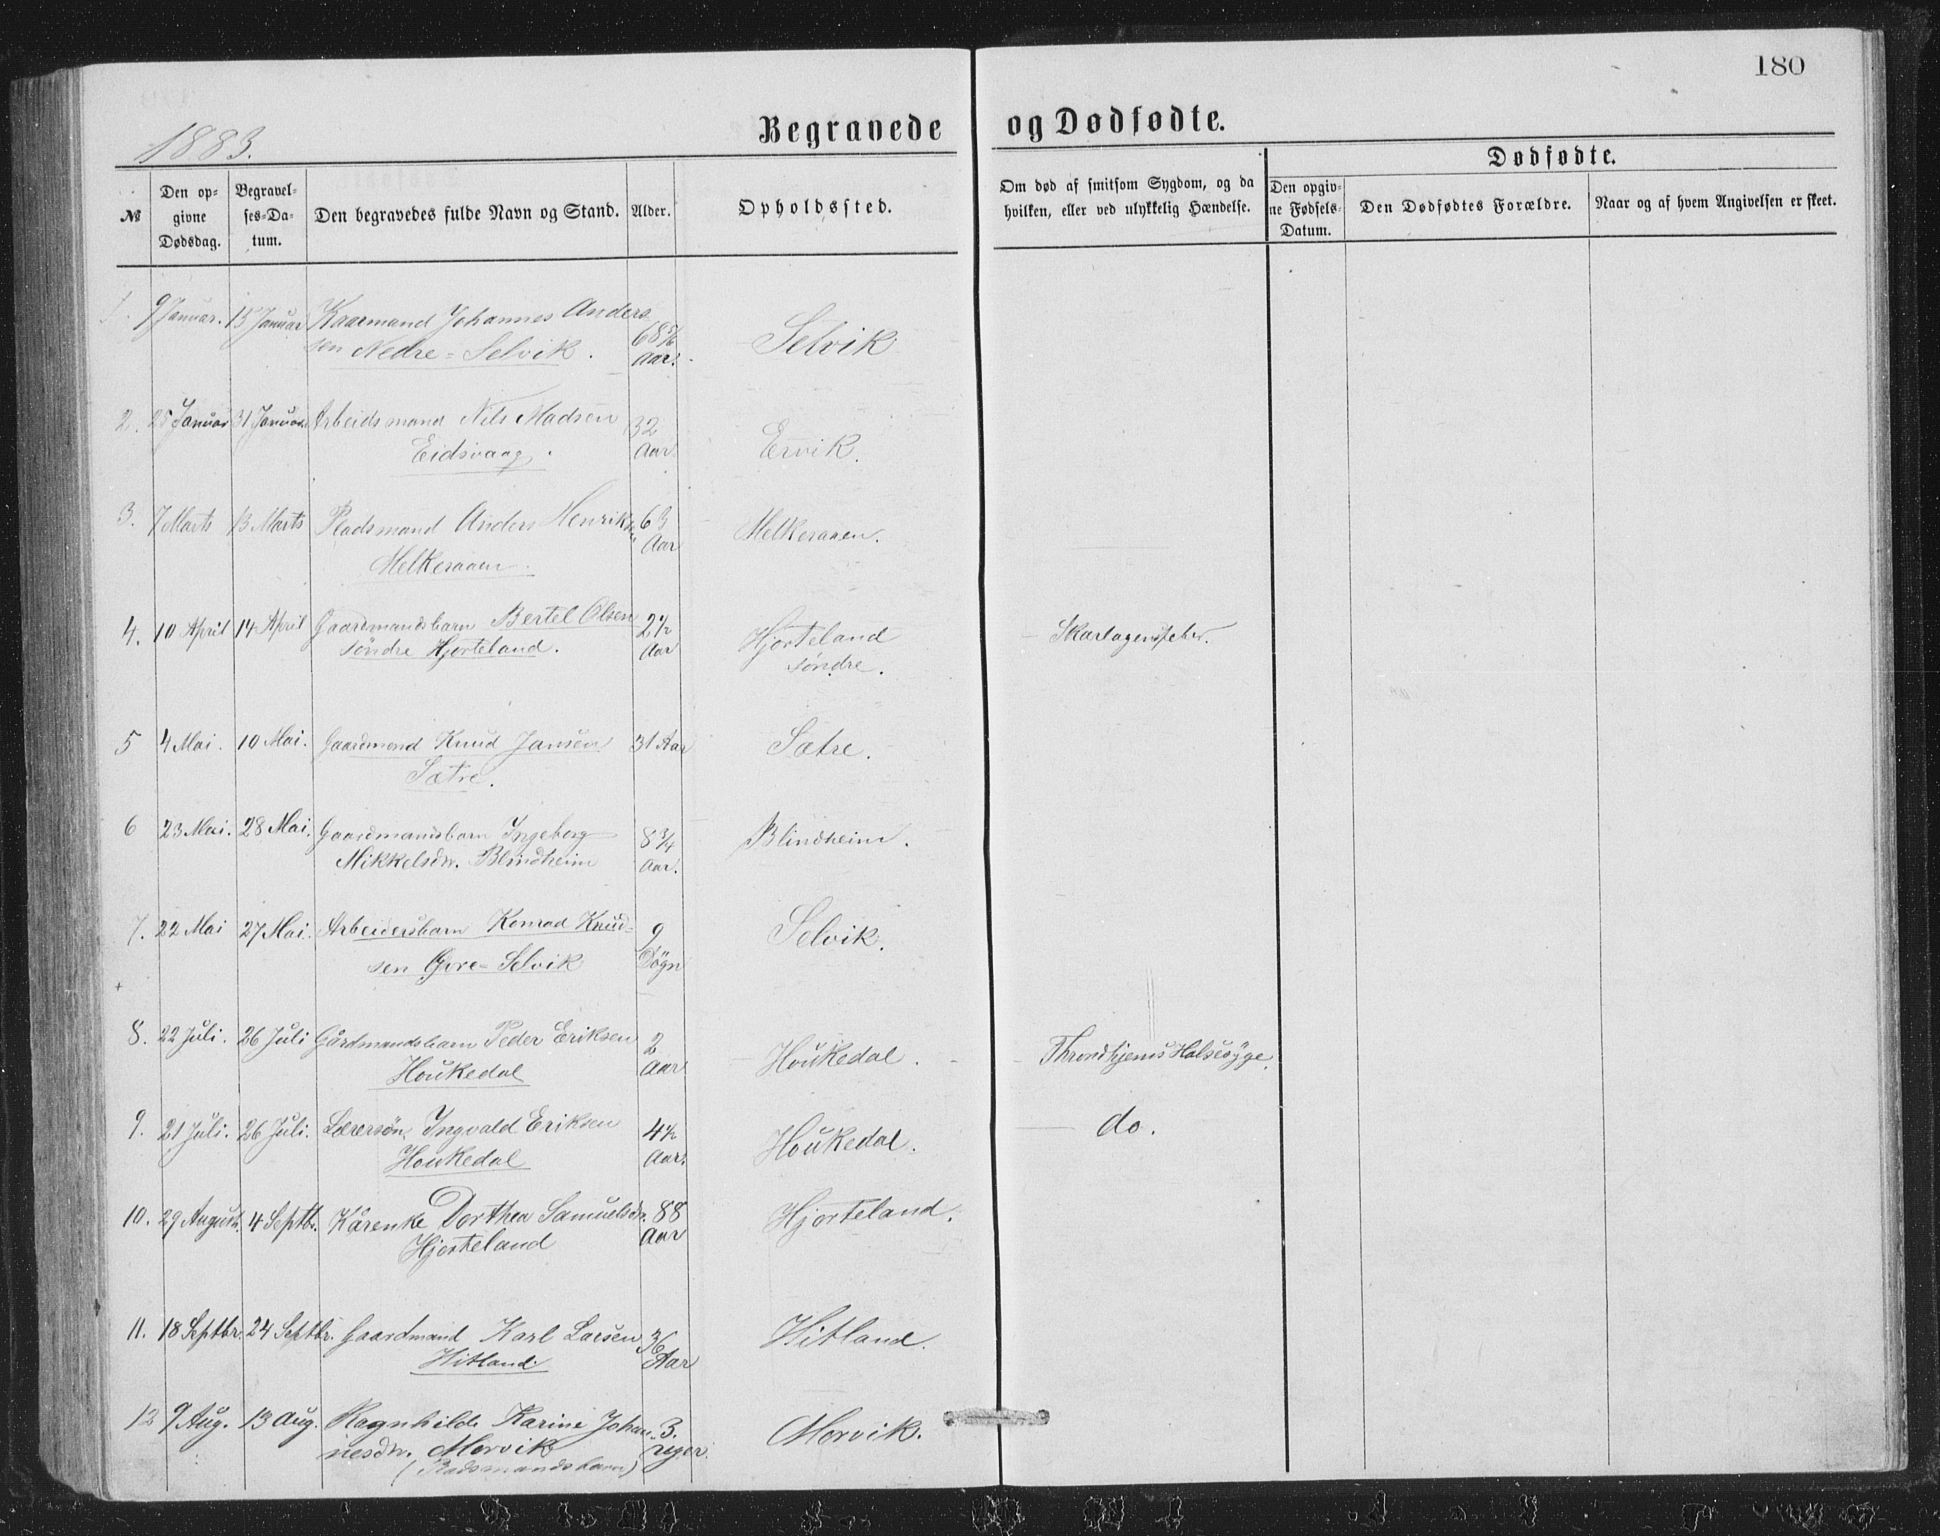 180
Begravede og Dødfødte.
1883.
Dødfødte.
№
Den op-
givne
Dødsdag.
Begravel-
ses-Da-
tum.
Den begravedes fulde Navn og Stand.
Alder.
Opholdssted.
Om død af smitsom Sygdom, og da
hvilken, eller ved ulykkelig Hændelse.
Den opgiv-
ne Fødsels-
Datum.
Den Dødfødtes Forældre.
Naar og af hvem Angivelsen er skeet.
1. 9 Januar. 15 Januar Kaarmand Johannes Anders
sen Nedre-Selvik. 68 Aar. Selvik
2. 25 Januar 31 Januar Arbeidsmand Nils Madsen 32
Eidsvaag. Aar. Ervik.
3. 7 Marts 13 Marts Pladsmand Anders Henriksen 63 Melkeraaen.
Melkeraaen. Aar
4. 10 April 14 April Gaardmandsbarn Bertel Olsen 2½ Hjorteland Skarlagensfeber.
søndre Hjorteland. Aar søndre.
5 4 Mai. 10 Mai. Gaardmand Knud Jansen 31 Aar Sætre.
Sætre.
6 23 Mai. 28 Mai. Gaardmandsbarn Ingeborg 8¾ Blindheim.
Mikkelsdr. Blindheim Aar.
7. 22 Mai 27 Mai. Arbeidersbarn Konrad Knud- 9 Selvik.
sen Øvre-Selvik Døgn
8. 22 Juli. 26 Juli Gårdmandsbarn Peder Eriksen 2 Houkedal. Throndhjems Halsesyge.
Houkedal Aar
9. 21 Juli. 26 Juli. Lærersøn Ingvald Eriksen 4½ Houkedal. do.
Houkedal Aar.
10. 29 August. 4 Septbr. Kårenke Dorthea Samuelsdr. 88 Hjorteland.
Hjorteland Aar
11. 18 Septbr. 24 Septbr. Gaardmand Karl Larsen 36 Hitland.
Hitland. Aar
12 9 Aug. 13 Aug. Ragnhilde Karine Johan- 3. Morvik.
nesdr. Morvik uger.
(Pladsmandsbarn)